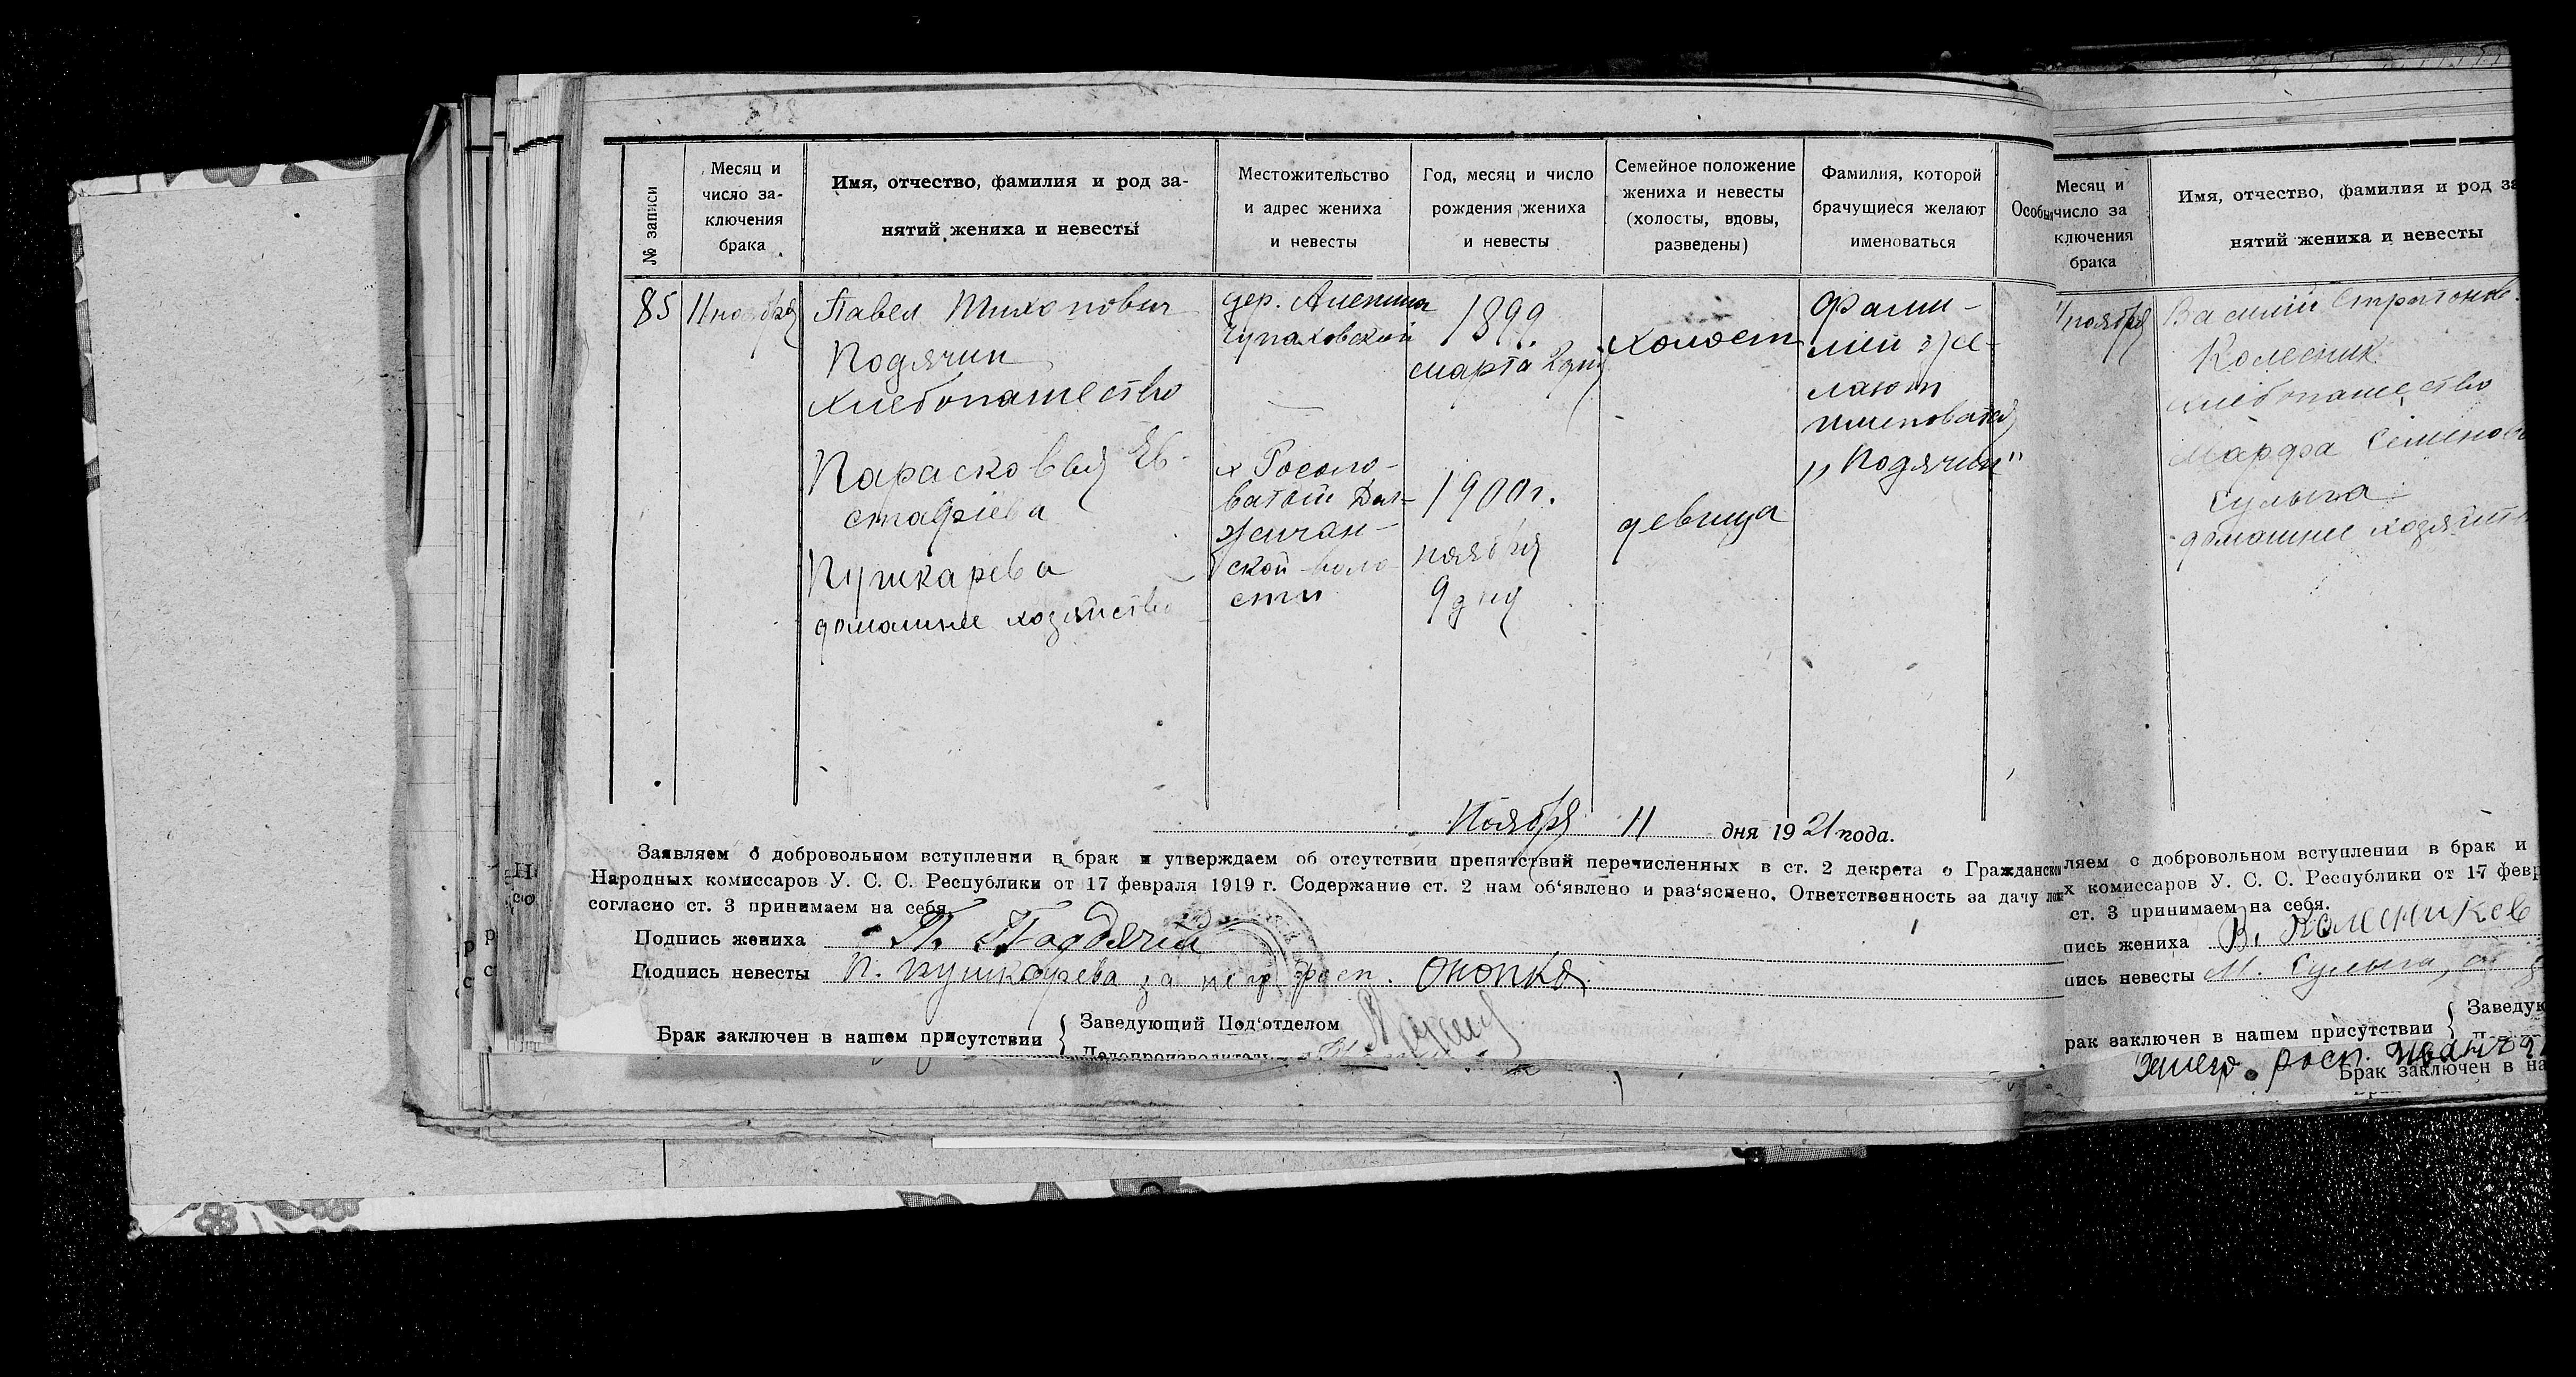 № записи
Месяц и
число за-
ключения
брака
Имя, отчество, фамилия и род за-
нятий жениха и невесты
Местожительство
и адрес жениха
и невесты
Год, месяц и число
рождения жениха
и невесты
Семейное положение
жениха и невесты
(холосты, вдовы,
разведены)
Фамилия, которой
брачущиеся желают
именоваться
Особы
85
11 ноября
Павел Тихонович
Подячин
хлебопашество
Парасковья Ев-
стафіева
Пушкарева
домашнее хозяйство
дер. Алешина
Чупаховской
х Росоло-
ватый
ской воло-
сти
1899
марта 2 дня
1900 г.
ноября
9 дня
холост
девица
Фами-
лией же-
лают
именоваться
„Подячин"
Ноября 11 дня 1921 года.
Заявляем о добровольном вступлении в брак и утверждаем об отсутствии препятствий перечисленных в ст. 2 декрета о Гражданском
Народных комиссаров У. С. С. Республики от 17 февраля 1919 г. Содержание ст. 2 нам об'явлено и раз'яснено. Ответственность за дачу
согласно ст. 3 принимаем на себя.
Подпись жениха П. Подячин
Подпись невесты П. Пушкарева за негр росп. Онопко
Брак заключен в нашем присутствии { Заведующий Под'отделом
Делопроизводитель
Месяц и
число за
ключения
брака
Имя, отчество, фамилия и род за
нятий жениха и невесты
11 ноября
Василий Стратонов.
Колесник
хлебопашество
Марфа Семенов
Сулыга
домашнее хозяйств
ляем о добровольном вступлении в брак и
х комиссаров У. С. С. Республики от 17 февр
ст. 3 принимаем на себя.
пись жениха В. Колесников
пись невесты М. Сулыга,
рак заключен в нашем присутствии { Заведую
росп. Иван
Брак заключен в на